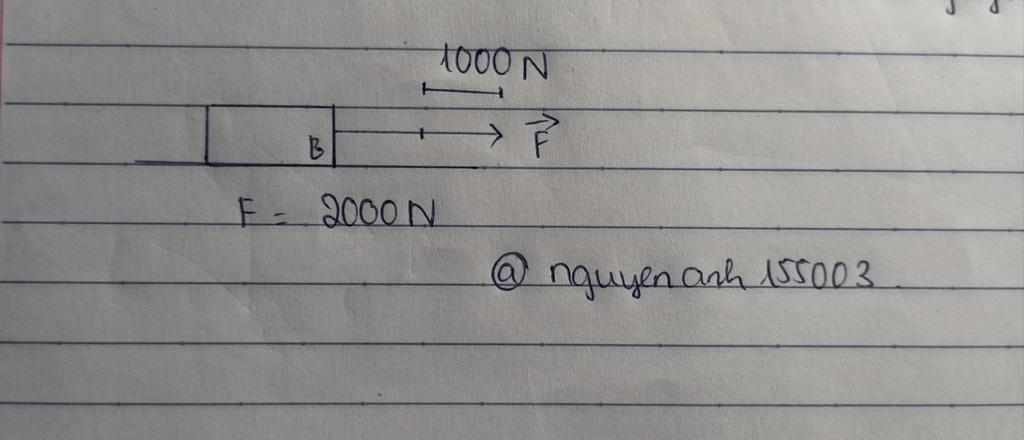 1000 N
B
F
F = 2000 N
@ nguyenanh 155003